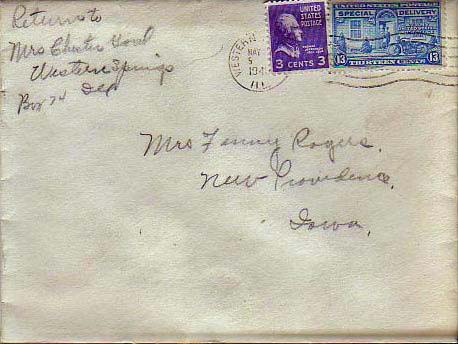 Return to
Mrs Chester
Western Springs
Box 74
WESTERN
MAY
5
194
ILL
UNITED STATES
POSTAGE
3 CENTS 3
UNITED STATES POSTAGE
SPECIAL DELIVERY
13 THIRTEEN CENTS 13
Mrs Fenny Rogers.
New Providence.
Iowa.